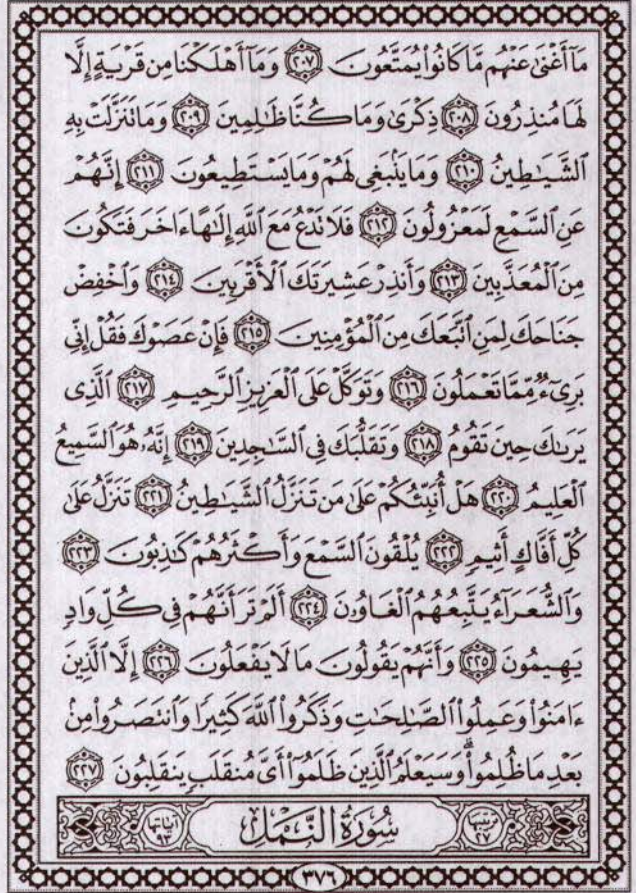 مَآ أَغْنَىٰ عَنْهُم مَّا كَانُوا۟ يُمَتَّعُونَ ٢٠٧ وَمَآ أَهْلَكْنَا مِن قَرْيَةٍ إِلَّا
لَهَا مُنذِرُونَ ٢٠٨ ذِكْرَىٰ وَمَا كُنَّا ظَـٰلِمِينَ ٢٠٩ وَمَا تَنَزَّلَتْ بِهِ
ٱلشَّيَـٰطِينُ ٢١٠ وَمَا يَنۢبَغِى لَهُمْ وَمَا يَسْتَطِيعُونَ ٢١١ إِنَّهُمْ
عَنِ ٱلسَّمْعِ لَمَعْزُولُونَ ٢١٢ فَلَا تَدْعُ مَعَ ٱللَّهِ إِلَـٰهًا ءَاخَرَ فَتَكُونَ
مِنَ ٱلْمُعَذَّبِينَ ٢١٣ وَأَنذِرْ عَشِيرَتَكَ ٱلْأَقْرَبِينَ ٢١٤ وَٱخْفِضْ
جَنَاحَكَ لِمَنِ ٱتَّبَعَكَ مِنَ ٱلْمُؤْمِنِينَ ٢١٥ فَإِنْ عَصَوْكَ فَقُلْ إِنِّى
بَرِىٓءٌ مِّمَّا تَعْمَلُونَ ٢١٦ وَتَوَكَّلْ عَلَى ٱلْعَزِيزِ ٱلرَّحِيمِ ٢١٧ ٱلَّذِى
يَرَىٰكَ حِينَ تَقُومُ ٢١٨ وَتَقَلُّبَكَ فِى ٱلسَّـٰجِدِينَ ٢١٩ إِنَّهُۥ هُوَ ٱلسَّمِيعُ
ٱلْعَلِيمُ ٢٢٠ هَلْ أُنَبِّئُكُمْ عَلَىٰ مَن تَنَزَّلُ ٱلشَّيَـٰطِينُ ٢٢١ تَنَزَّلُ عَلَىٰ
كُلِّ أَفَّاكٍ أَثِيمٍ ٢٢٢ يُلْقُونَ ٱلسَّمْعَ وَأَكْثَرُهُمْ كَـٰذِبُونَ ٢٢٣
وَٱلشُّعَرَآءُ يَتَّبِعُهُمُ ٱلْغَاوُۥنَ ٢٢٤ أَلَمْ تَرَ أَنَّهُمْ فِى كُلِّ وَادٍ
يَهِيمُونَ ٢٢٥ وَأَنَّهُمْ يَقُولُونَ مَا لَا يَفْعَلُونَ ٢٢٦ إِلَّا ٱلَّذِينَ
ءَامَنُوا۟ وَعَمِلُوا۟ ٱلصَّـٰلِحَـٰتِ وَذَكَرُوا۟ ٱللَّهَ كَثِيرًا وَٱنتَصَرُوا۟ مِنۢ
بَعْدِ مَا ظُلِمُوا۟ ۗ وَسَيَعْلَمُ ٱلَّذِينَ ظَلَمُوٓا۟ أَىَّ مُنقَلَبٍ يَنقَلِبُونَ ٢٢٧
ترتيبها ٢٧ سُورَةُ ٱلنَّمْلِ آياتها ٩٣
٣٧٦